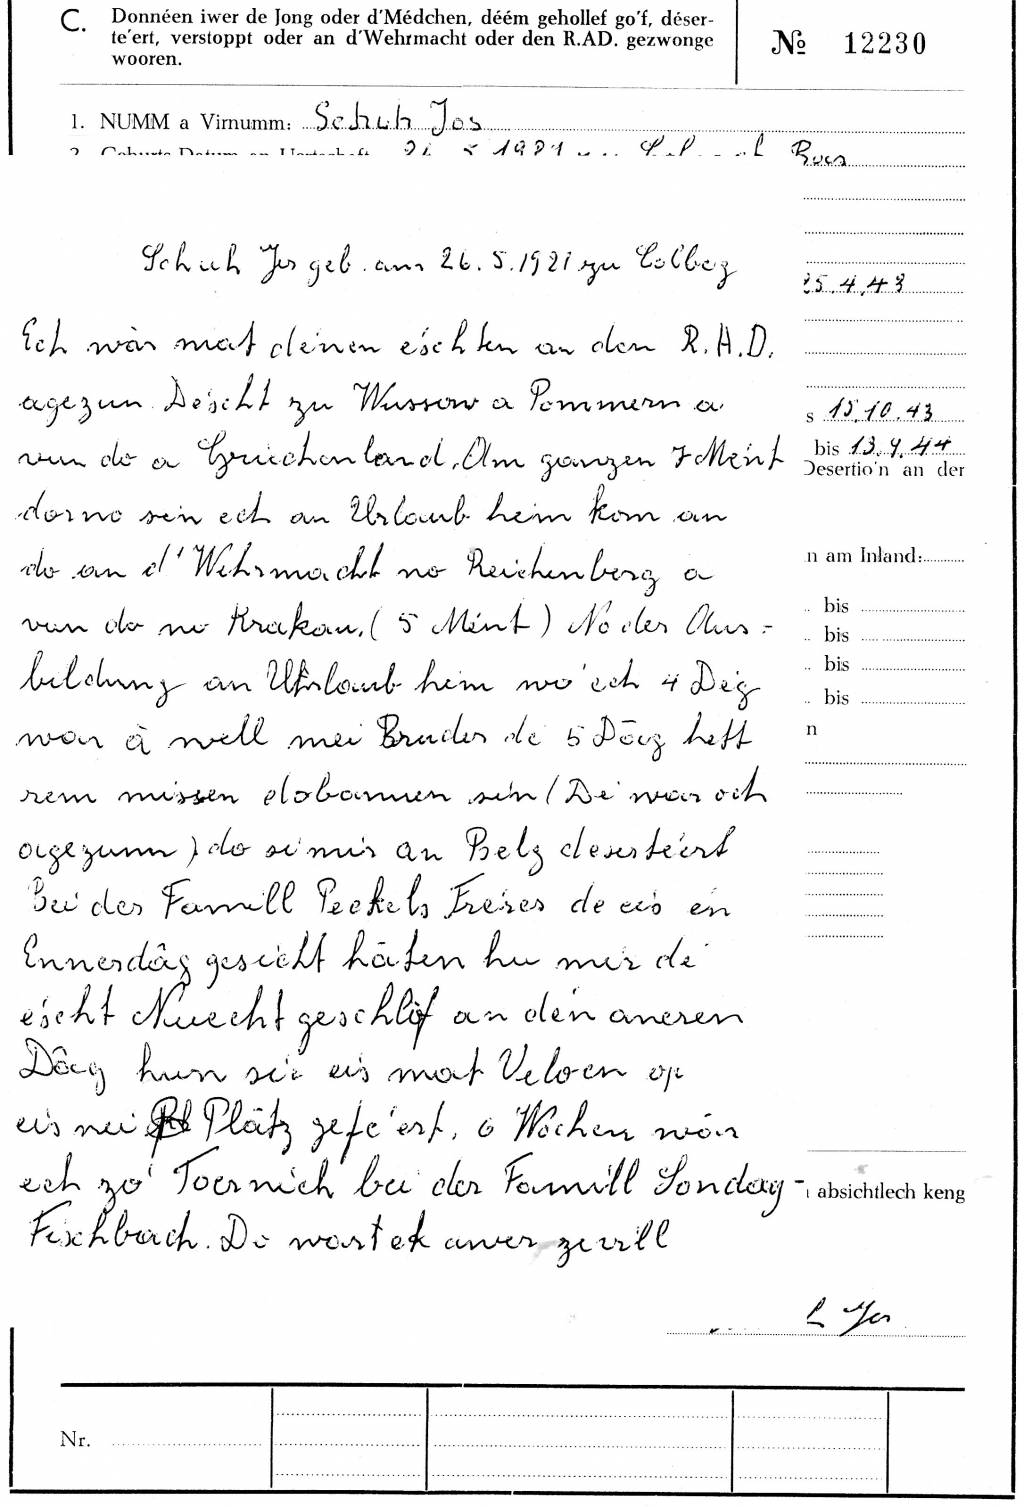 C. Donnéen iwer de Jong oder d'Médchen, déém gehollef go'f, déser-
te'ert, verstoppt oder an d'Wehrmacht oder den R.AD. gezwonge
wooren.
№ 12230
1. NUMM a Virnumm: Schuh Jos
Schuh Jos geb. am 26.5.1921 zu Colbez
25.4.43
Ech wàr mat dénen e'schten an den R.A.D.
agezun. De'scht zu Wussow a Pommern a
s 15.10.43
vun do a Griechenland. Am ganzen 7 Me'nt
bis 13.4.44
Desertio'n an der
dorno sin ech an Urlaub heim kom an
do an d'Wehrmacht no Reichenberg a
n am Inland:
vun do no Krakau. (5 Me'nt) No der Aus-
bis
bis
bildung an Uhrlaub heim wo' ech 4 Dég
bis
bis
war à well mei Bruder de' 5 Dāg hett
n
rem missen dobannen sin (De' war och
agezunn) do si mir an Belg deserte'ert
Bei der Famill Peckels Frères de eis én
Ennerdâg gesicht hāten hu mir de'
e'scht Nuecht geschlof an dén aneren
Dâg hun sie eis mat Veloen op
eis nei Plātz gefe'ert. 6 Wochen wàr
ech zo' Toernich bei der Famill Sondag-
ı absichtlech keng
Fischbach. Do wort ek awer zevill
Jos
Nr.